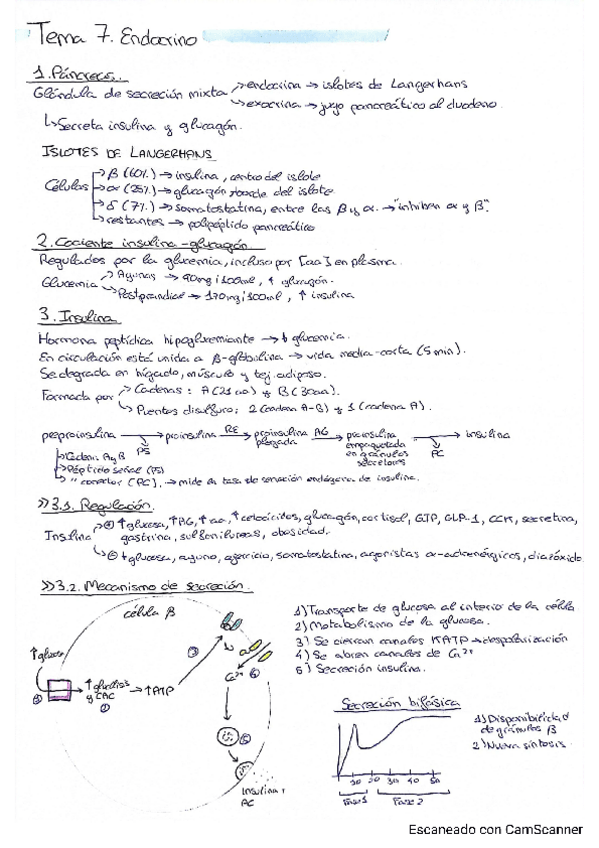 Tema 7. Endocrino
1. Páncreas.
Glándula de secreción mixta → endocrina → islotes de Langerhans
→ exocrina → jugo pancreático al duodeno.
↳ Secreta insulina y glucagón.
ISLOTES DE LANGERHANS
Células → β (60%) → insulina, centro del islote
→ α (25%) → glucagón, del islote
→ δ (7%) → somatostatina, entre las β y α. → "inhiben α y β".
→ restantes → polipéptido pancreático
2. Cociente insulina-glucagón
Regulados por la glucemia, incluso por [aa] en plasma.
Glucemia → Ayunas → 90mg/100ml, ↑ glucagón.
→ Postprandial → 170mg/100ml, ↑ insulina
3. Insulina
Hormona peptídica hipoglucemiante → ↓ glucemia.
En circulación está unida a β-globulina → vida media-corta (5 min).
Se degrada en hígado, músculo y tej. adiposo.
Formada por → Cadenas: A (21 aa) y B (30aa).
↳ Puentes disulfuro: 2 (cadena A-B) y 1 (cadena A).
preproinsulina → proinsulina RE → proinsulina plegada AG → proinsulina empaquetada en gránulos secretores → insulina
PS
PC
↳ Cadena A y B
↳ Péptido señal (PS)
↳ " conector (PC). → mide la tasa de endógena de insulina.
>> 3.1. Regulación.
Insulina → ⊕ ↑ glucosa, ↑ AG, ↑ aa, ↑ cetoácidos, glucagón, cortisol, GIP, GLP-1, CCK, secretina,
gastrina, sulfonilureas, obesidad.
↳ ⊖ ↓ glucosa, ayuno, ejercicio, somatostatina, agonistas α-adrenérgicos, diazóxido
>> 3.2. Mecanismo de secreción.
célula β
↑ glucosa
①
↑ glucólisis y CAC
②
→ ↑ ATP
③
Ca²⁺ ④
⑤
Insulina +
PC
1) Transporte de glucosa al interior de la célula
2) Metabolismo de la glucosa.
3) Se cierran canales KATP → despolarización
4) Se abren canales de Ca²⁺
5) Secreción insulina.
Secreción bifásica
10 20 30 40 50
Fase 1 Fase 2
1) Disponibilidad
de gránulos β
2) Nueva síntesis
Escaneado con CamScanner